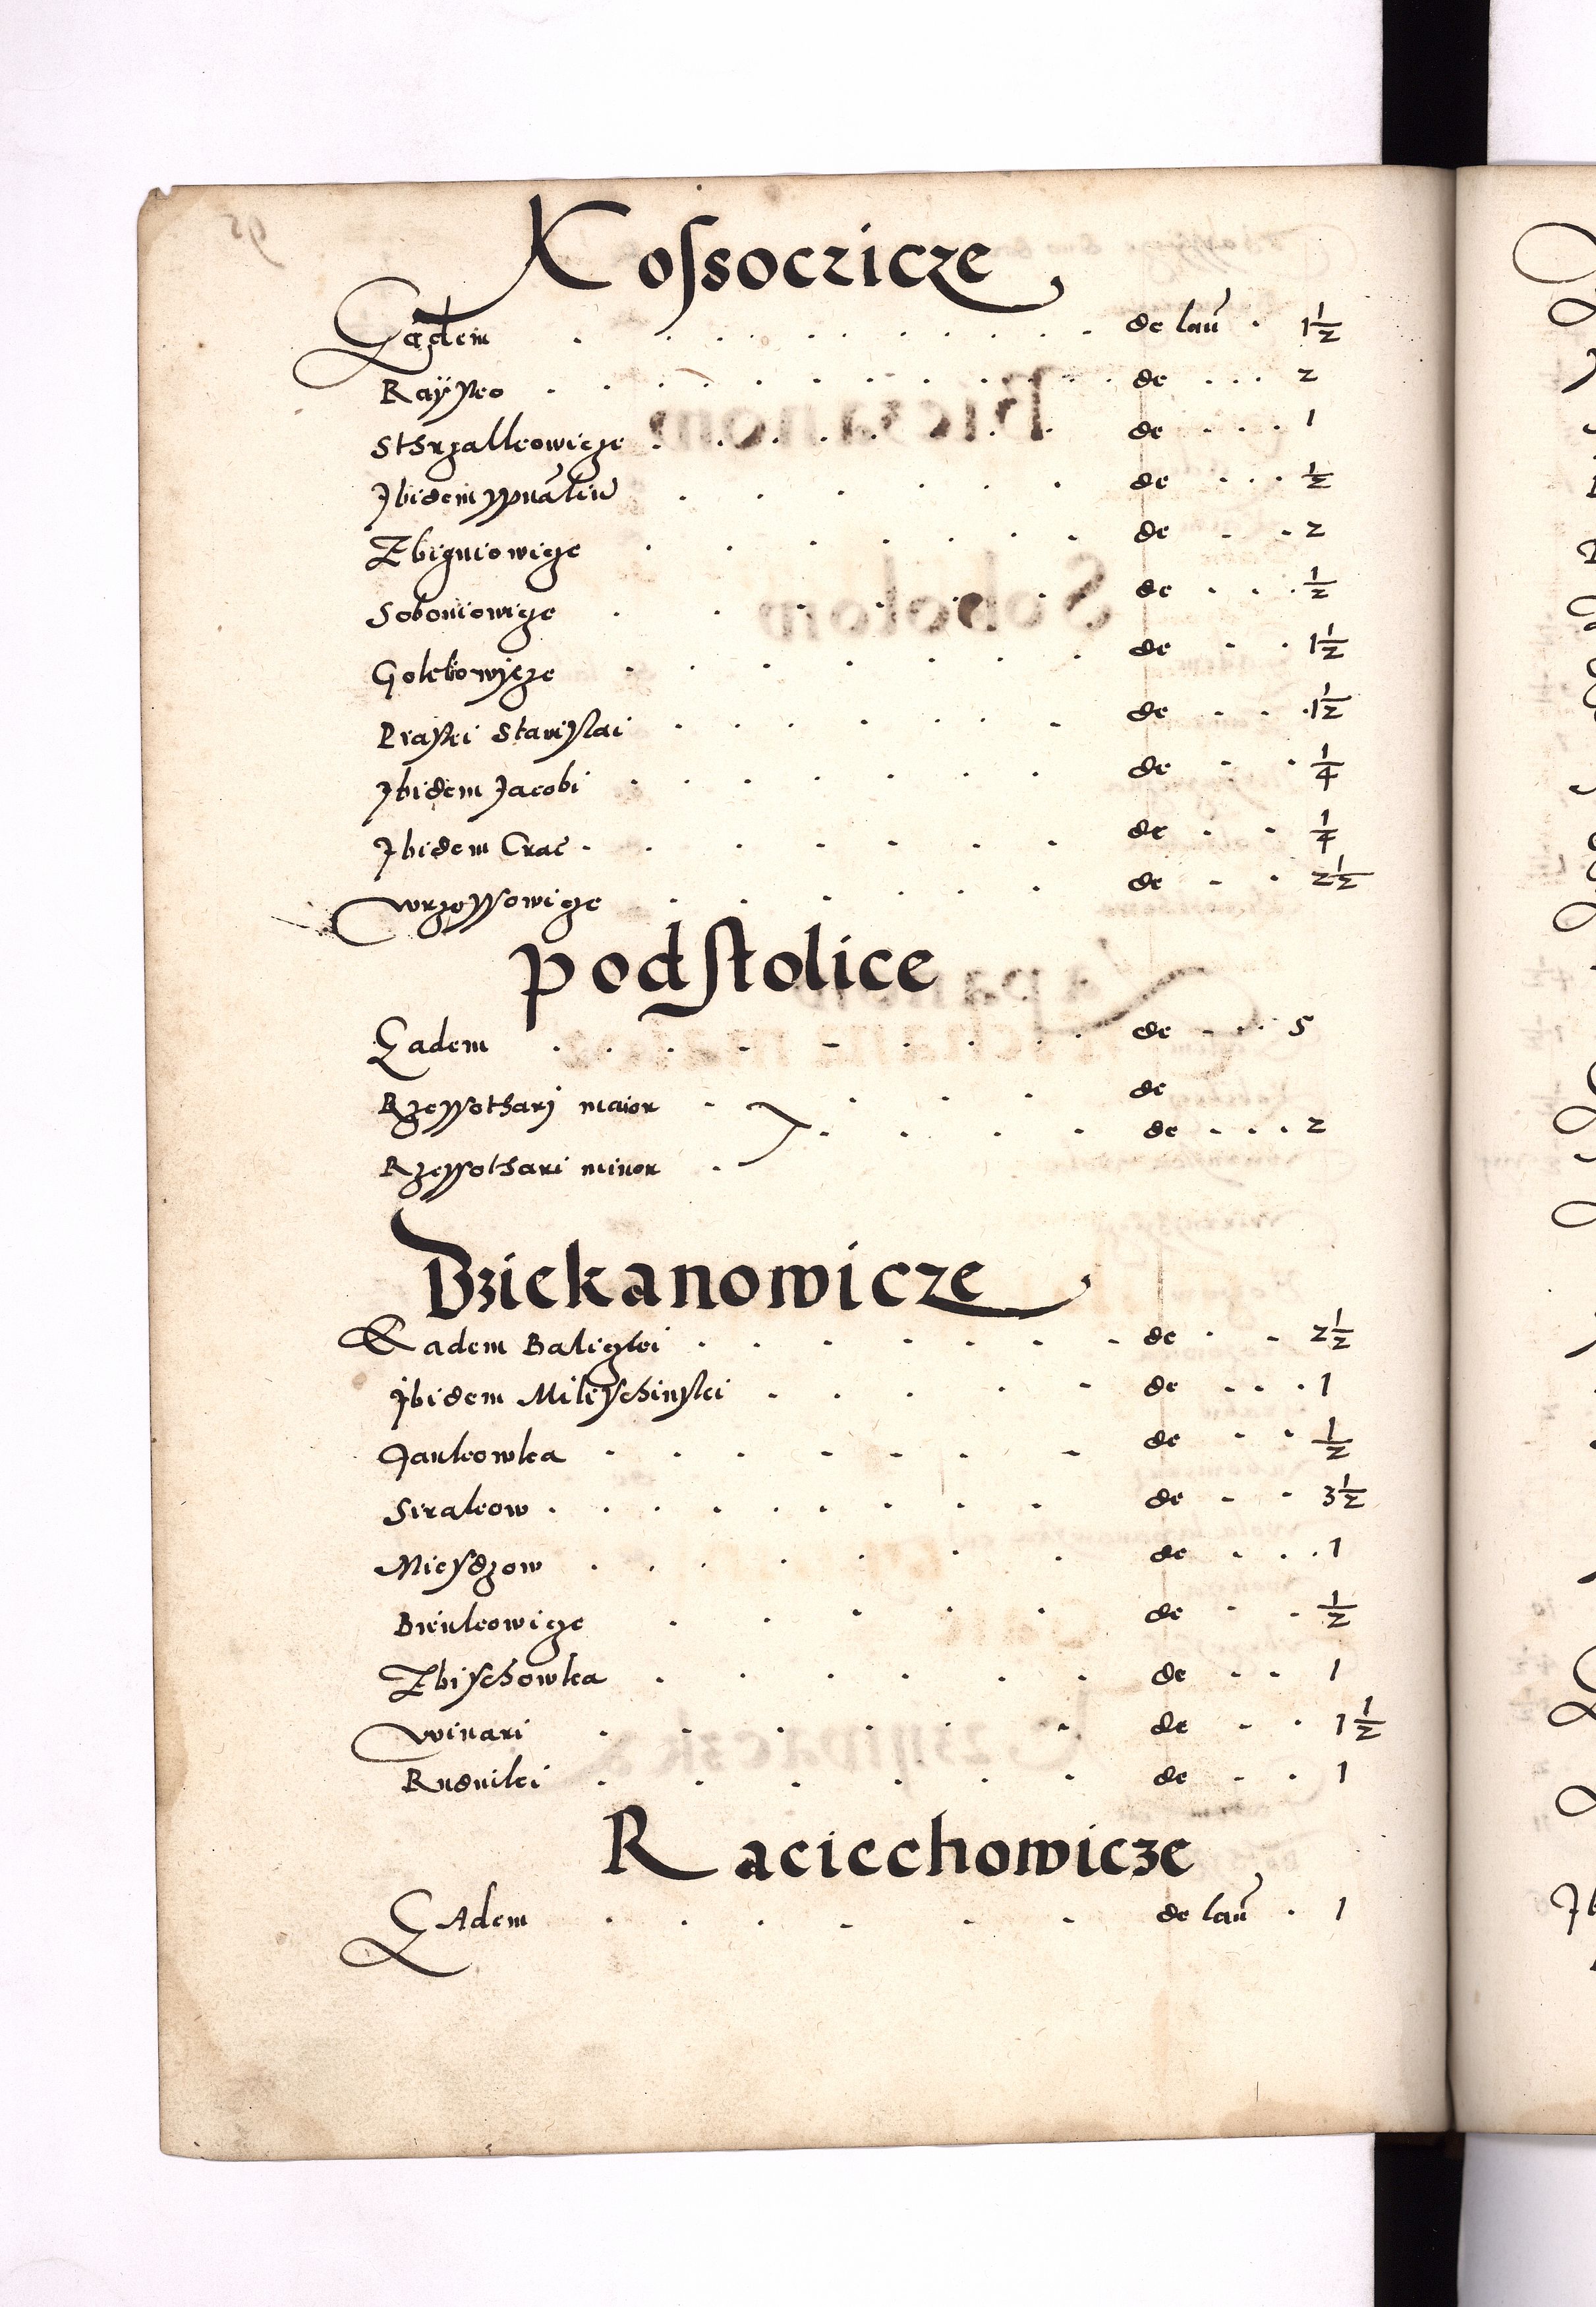 Kossoczicze
Eadem . . . . . . . . . de lan̄ . 1 1/2
Raÿsko . . . . . . . . . de . . . 2
Sthrzalkowicze . . . . . . . de . . . 1
Ibidem . . . . . . de . . . 1/2
Zbigniowicze . . . . . . de . . 2
Soboniowicze . . . . . . de . . . 1/2
Golebowycze . . . . . . . de . . 1 1/2
Piaski Stanislai . . . . . . . de . . . 1 1/2
Ibidem Jacobi . . . . . . . de . . 1/4
Ibidem Crac . . . . . . . de . . 1/4
Wrzossowicze . . . . . . de . . 2 1/2
Podstolice
Eadem . . . . . . . . de . . . 5
Rzessothary maior . . . . de
. . . . de . . . 2
Rzessothari minor .
Dziekanowicze
Eadem Baliczki . . . . . . . de . . 2 1/2
Ibidem Mileschinski . . . . . de . . . 1
Jankowka . . . . . . . de . . 1/2
Sirakow . . . . . . . . . de . . 3 1/2
Mieysczow . . . . . . . de . . . 1
Bienkowicze . . . . . de . . 1/2
Zbyschowka . . . . . . de . . 1
Winari . . . . . . de . . 1 1/2
Rudniki . . . . . . de . . 1
Raciechowicze
Eadem . . . . . . de lan̄ . 1